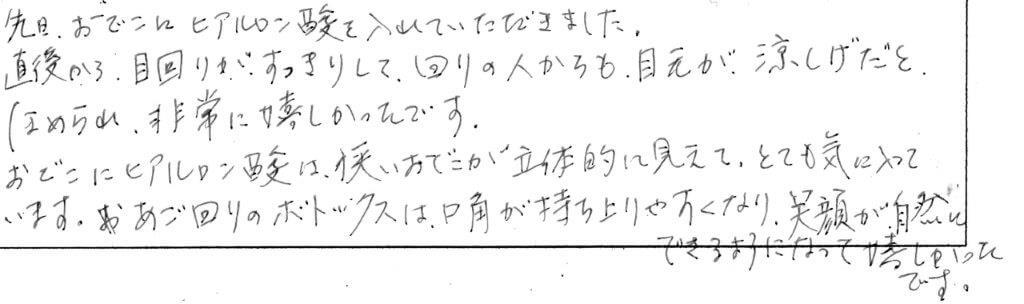 先日、おでこにヒアルロン酸を入れていただきました。
直後から、目回りが、すっきりして、回りの人からも、目元が、涼しげだと、
ほめられ、非常に嬉しかったです。
おでこにヒアルロン酸は、狭いおでこが立体的に見えて、とても気に入って
います。あご回りのボトックスは、口角が持ち上りやすくなり、笑顔が自然に
できるようになって嬉しかった
です。